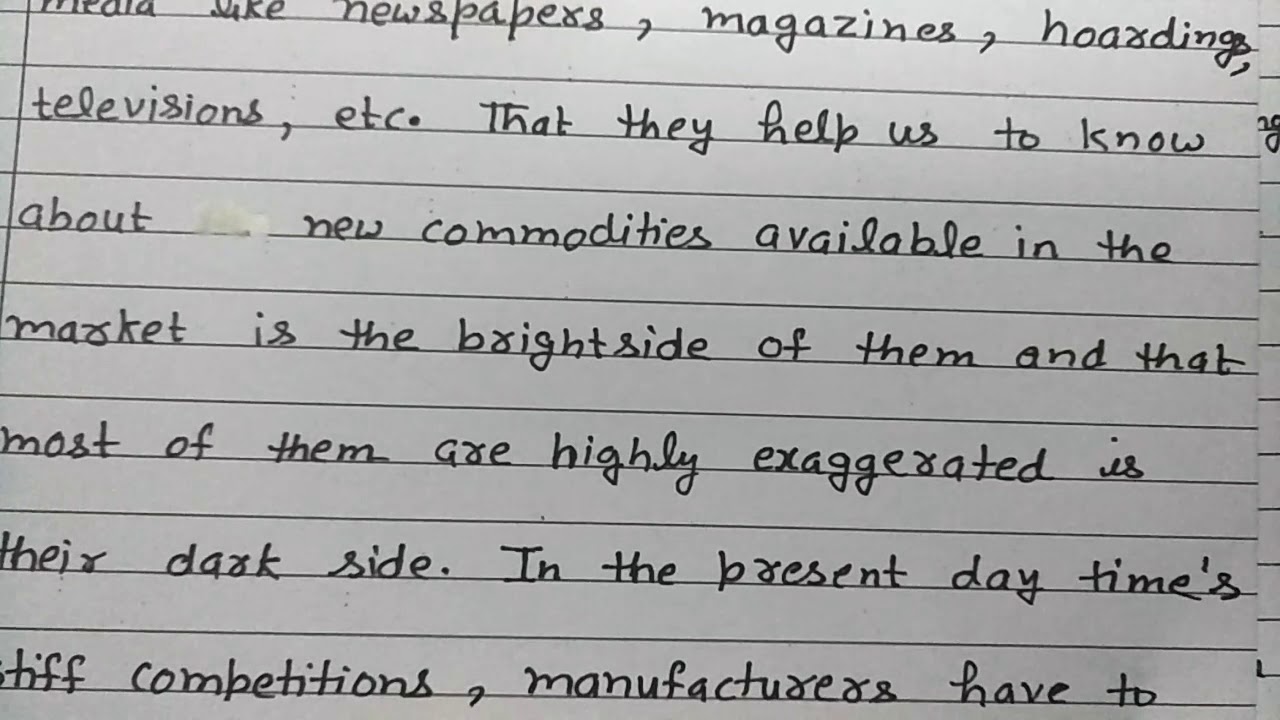 media like newspapers, magazines, hoardings,
televisions, etc. That they help us to know
about new commodities available in the
market is the brightside of them and that
most of them are highly exaggerated is
their dark side. In the present day time's
stiff competitions, manufacturers have to